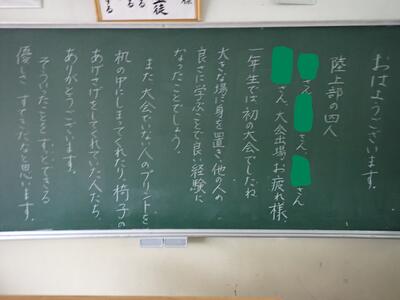 おはようございます。
陸上部の四人
さん、さん、さん
さん、大会出場お疲れ様、
一年生では初の大会でしたね
大きな場に身を置き、他の人の
良さに学ぶことで良い経験に
なったことでしょう。
また大会でいない人のプリントを
机の中にしまってくれたり、椅子の
あげさげをしてくれていた人たち、
ありがとうございます。
そういったことをすっとできると
優しさ、すてきだなと思います。